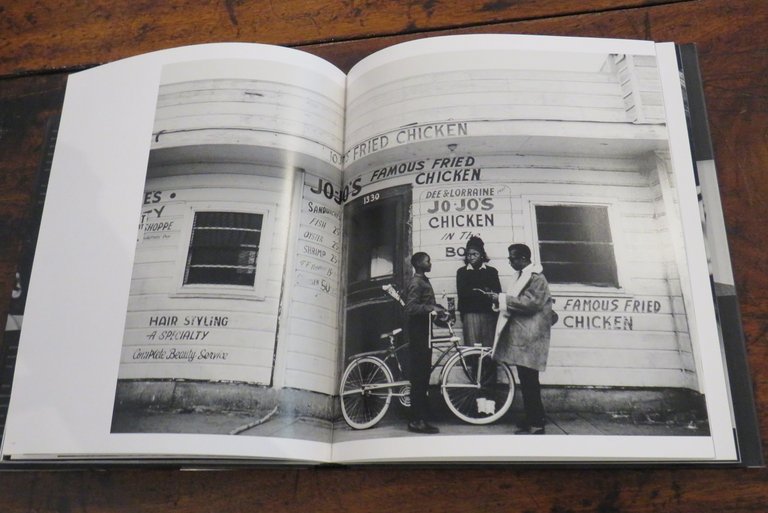 ES
TY
SHOPPE
HAIR STYLING
A SPECIALTY
Complete Beauty Service
JO'S FRIED CHICKEN
JO-JO'S FAMOUS FRIED
CHICKEN
1330
SANDWICHES
FISH
OYSTER
SHRIMP
50
DEE & LORRAINE
JO-JO'S
CHICKEN
IN The
BO
FAMOUS FRIED
CHICKEN